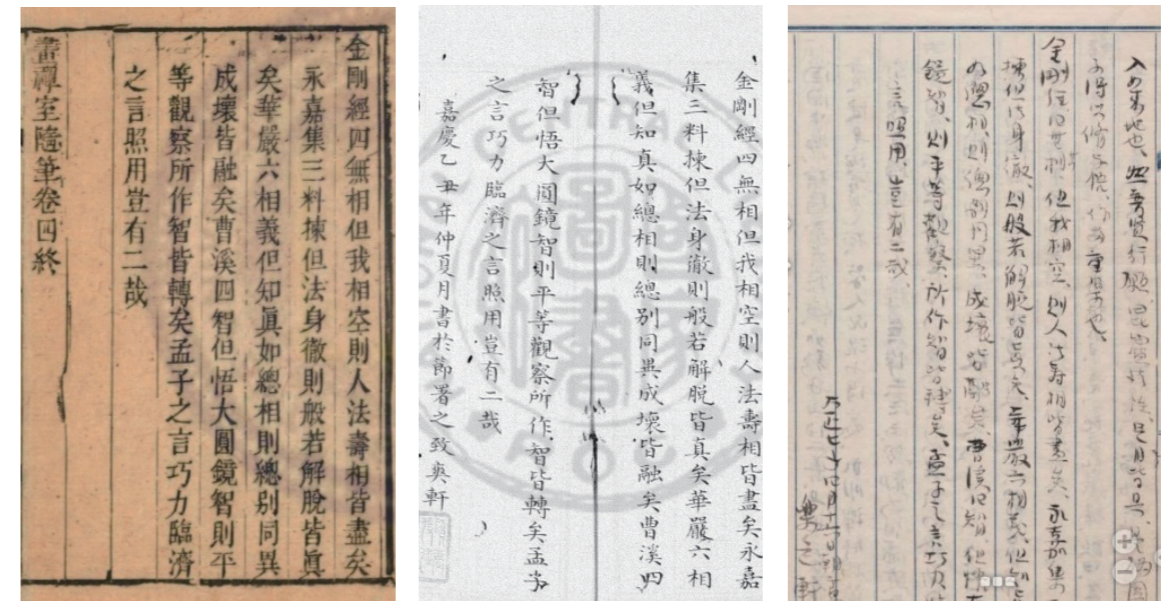 金剛經四無相但我相空則人法壽相皆盡矣
永嘉集三料揀但法身徹則般若解脫皆眞
矣華嚴六相義但知眞如總相則總别同異
成壞皆融矣曹溪四智但悟大圓鏡智則平
等觀察所作智皆轉矣孟子之言巧力臨濟
之言照用豈有二哉
畫禪室隨筆卷四終
金剛經四無相但我相空則人法壽相皆盡矣永嘉
集三料揀但法身徹則般若解脫皆真矣華嚴六相
義但知真如總相則總别同異成壞皆融矣曹溪四
智但悟大圓鏡智則平等觀察所作智皆轉矣孟子
之言巧力臨濟之言照用豈有二哉
嘉慶乙丑年仲夏月書於節署之致爽軒
入如來地也、此普賢行願、
金剛經四無相、但我相空、則人法壽相皆盡矣、永嘉集
揀但法身徹、則般若解脫皆真矣、華嚴六相義、但知
如總相、則總别同異、成壞皆融矣、曹溪四智、但悟
鏡智、則平等觀察、所作智皆轉矣、孟子之言巧力
之言照用、豈有二哉、